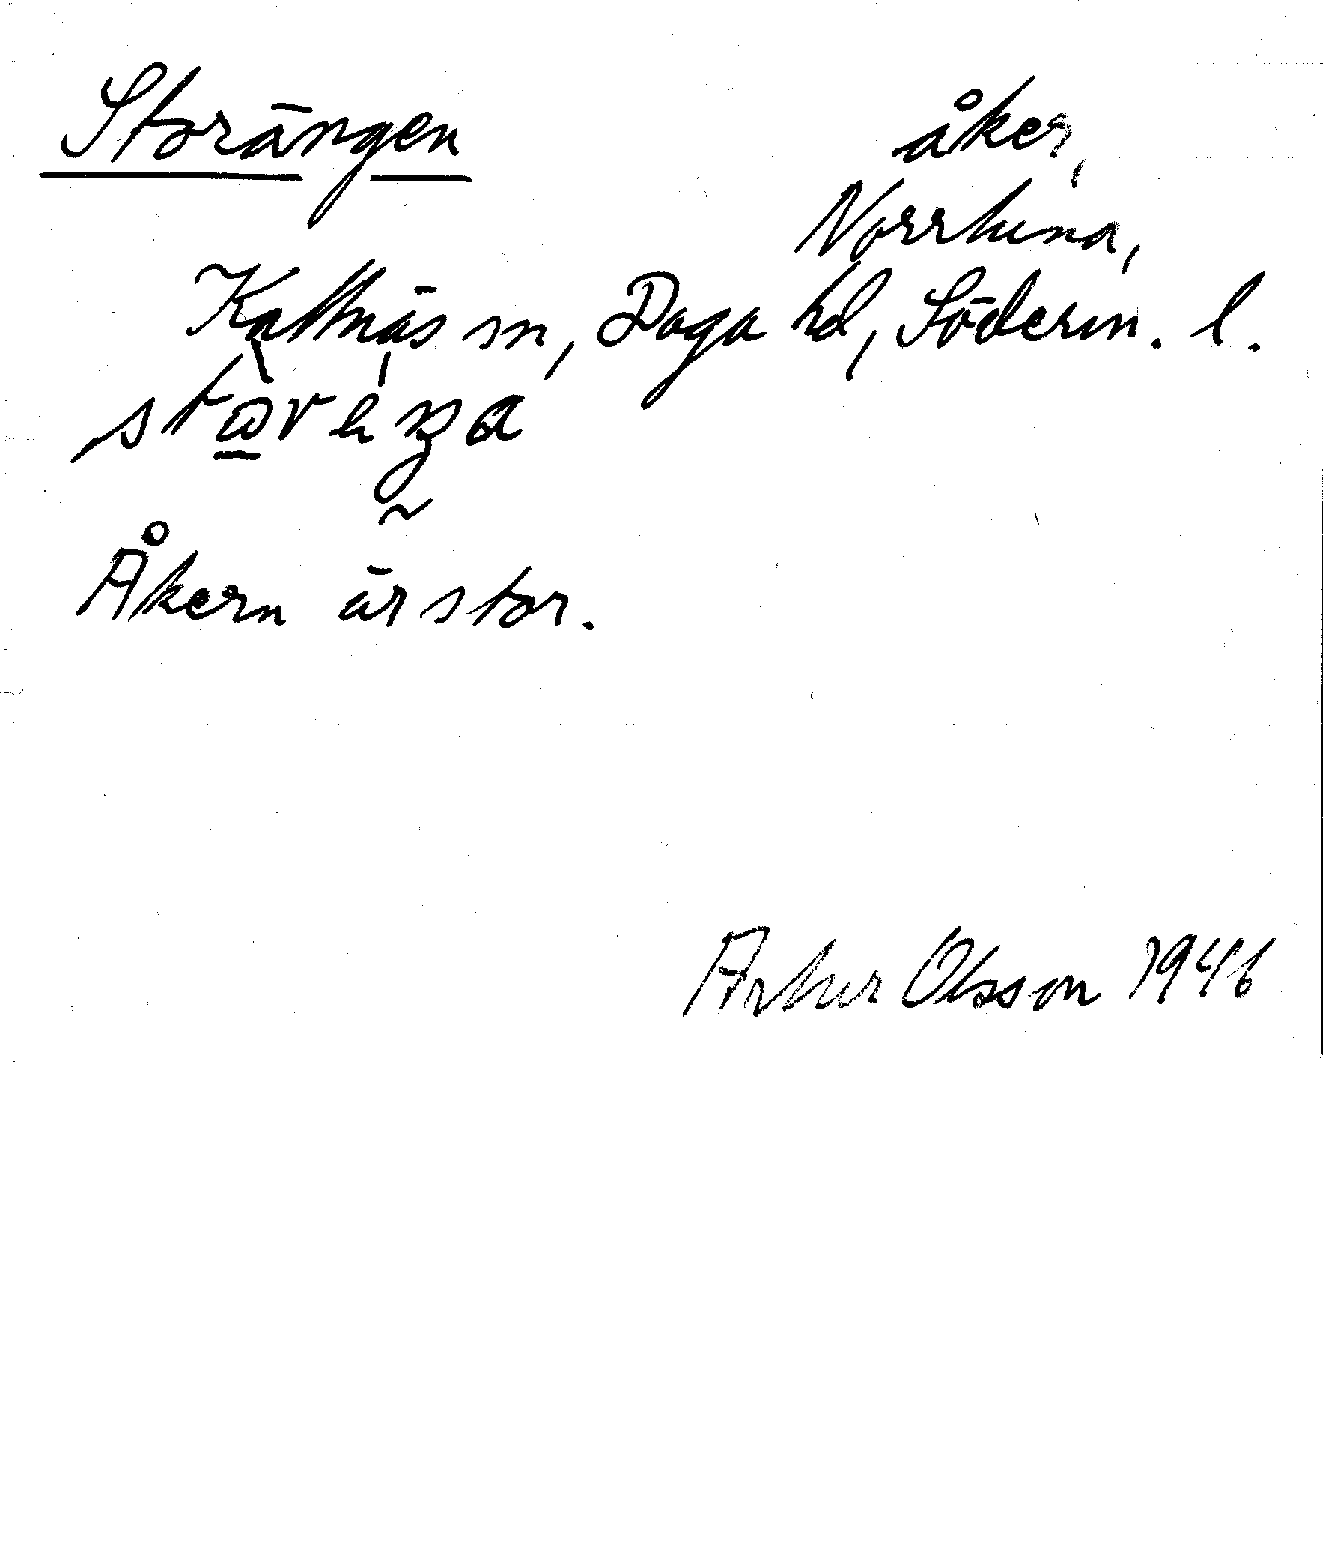 Storängen åker,
Norrtuna,
Kattnäs sn, Daga hd, Söderm. l.
Åkern är stor.
Arthur Olsson 1946